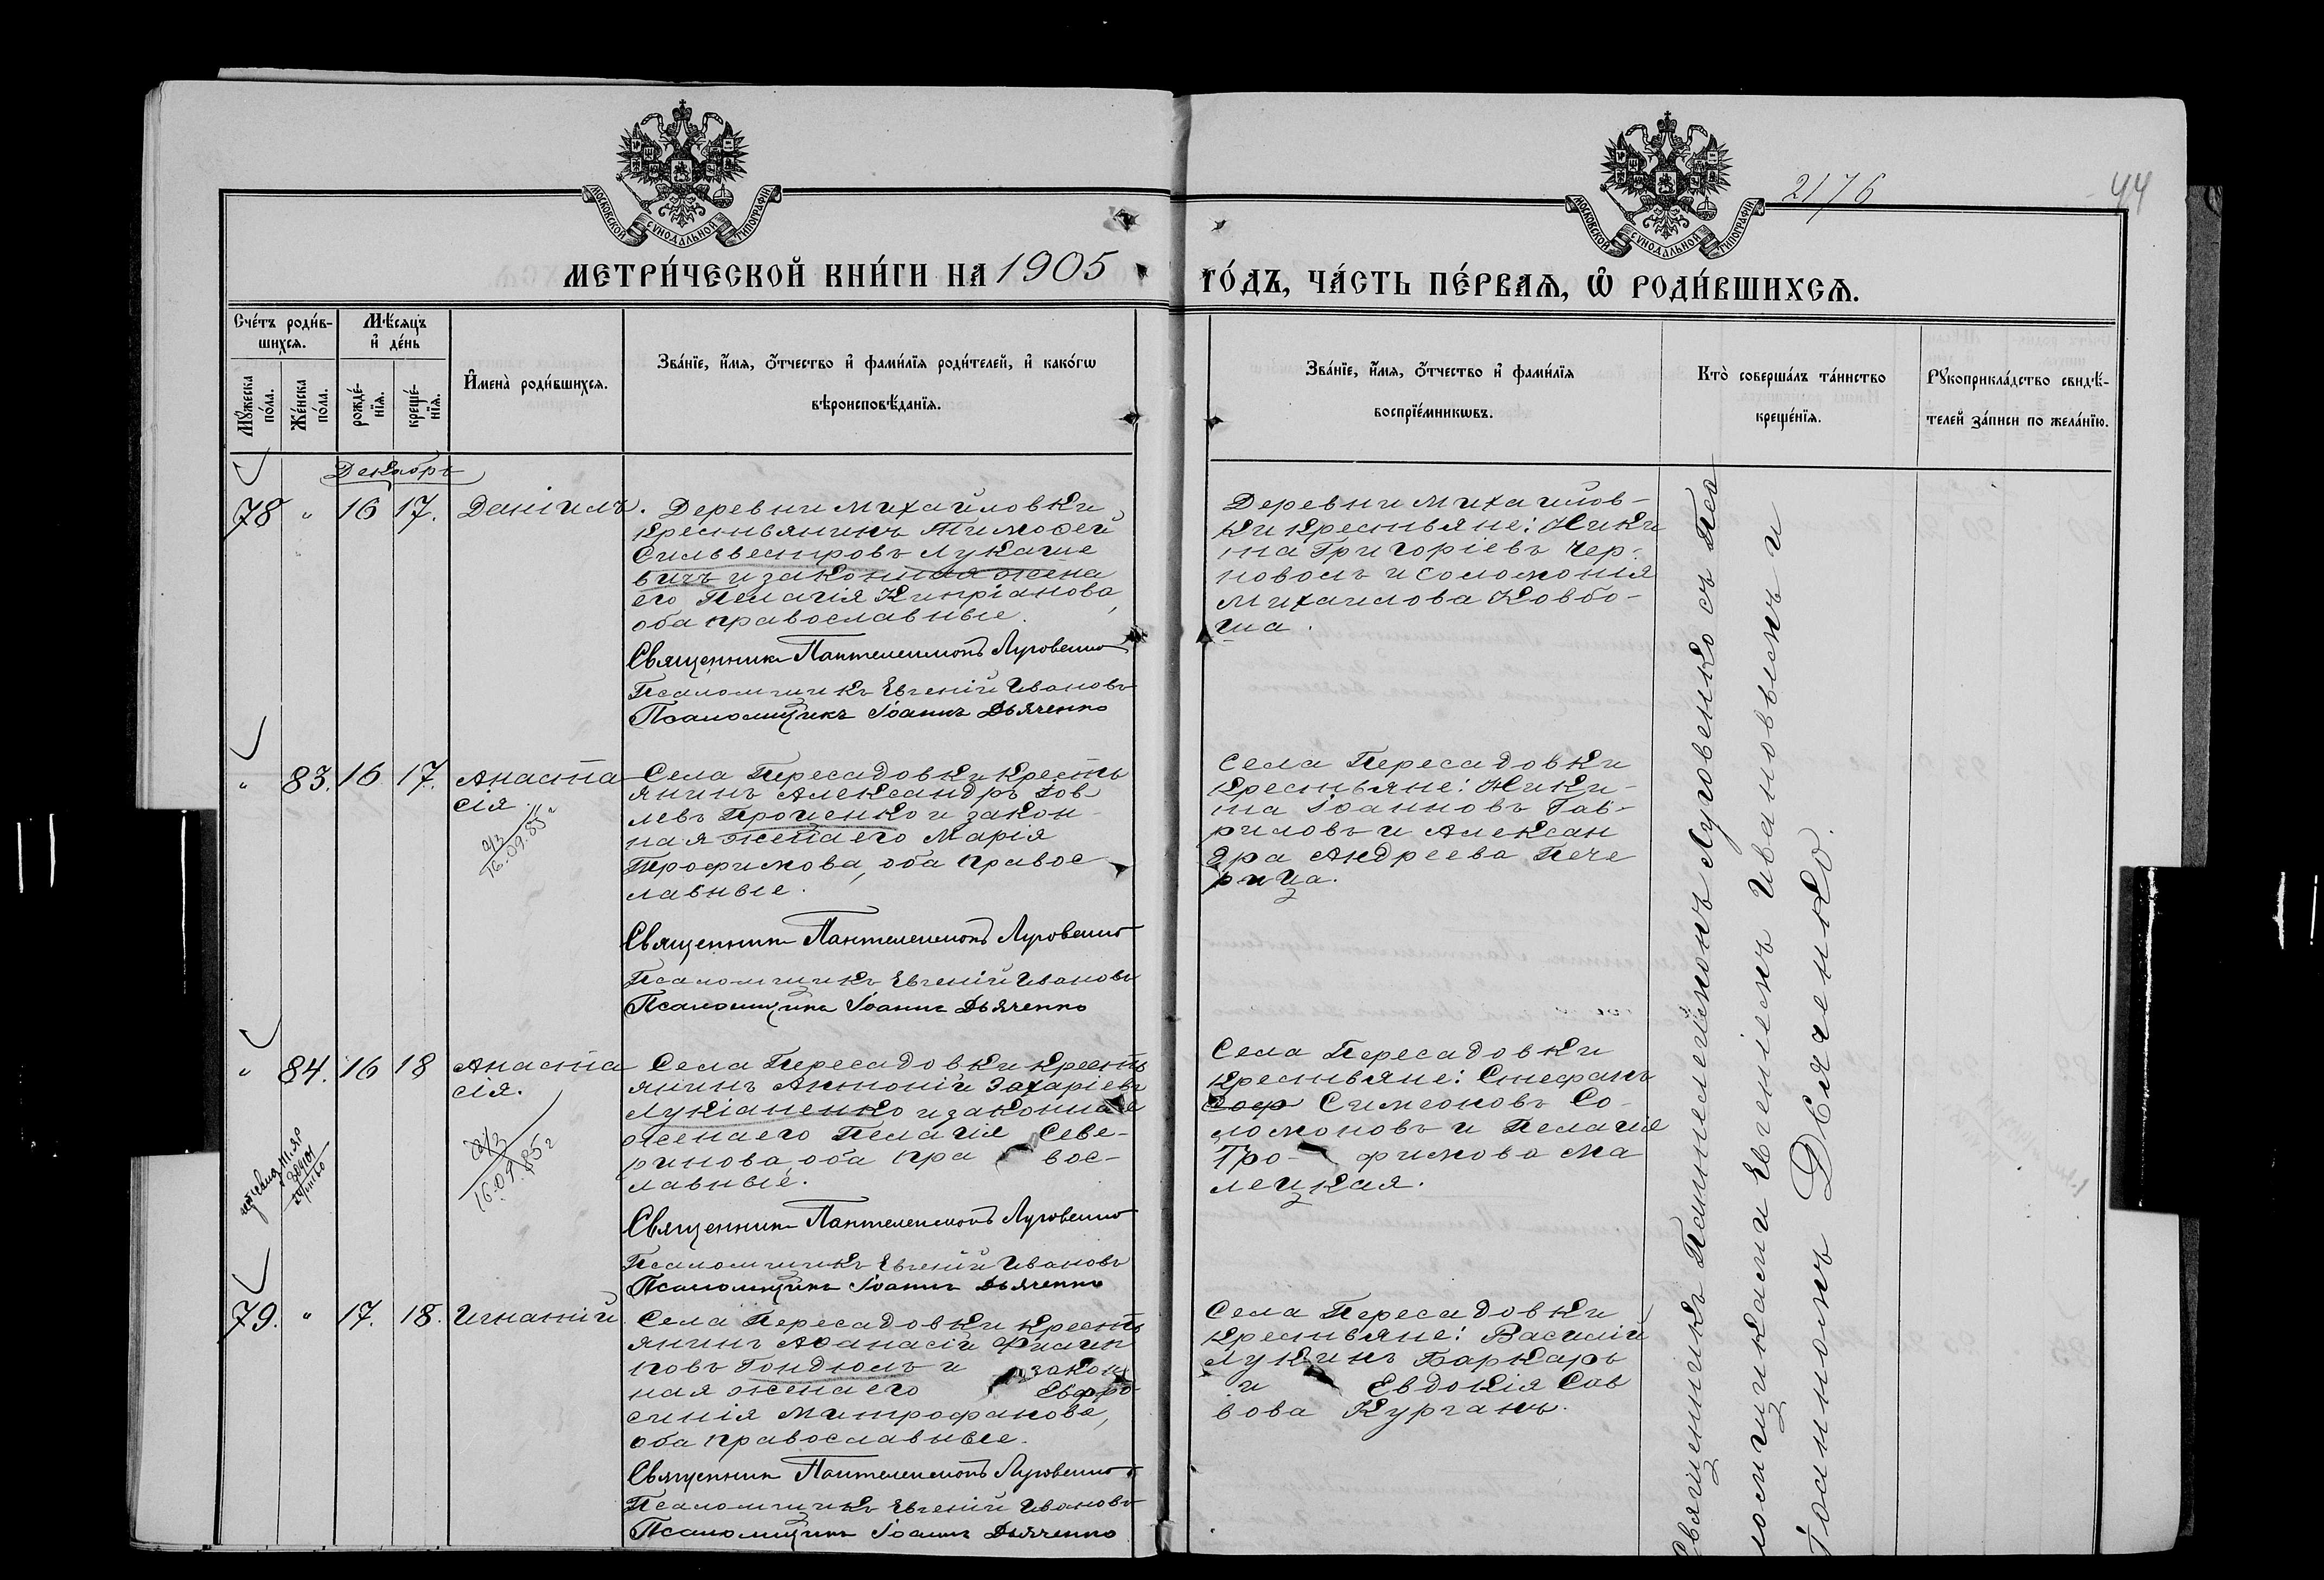 МОСКОВСКОЙ СУНОДАЛЬНОЙ ТИПОГРАФІИ
МОСКОВСКОЙ СУНОДАЛЬНОЙ ТИПОГРАФІИ
2176
44
МЕТРИ́ЧЕСКОЙ КНИ́ГИ НА 1905
ГО́ДЪ, ЧА́СТЬ ПЕ́РВАѦ, Ѽ РОДИ́ВШИХСѦ.
Сче́тъ роди́в-
шихсѧ.
Мꙋ́жеска
по́ла.
Же́нска
по́ла.
Мѣ́сѧцъ
и҆ де́нь
рожде́-
нїѧ.
креще́-
нїѧ.
И҆мена̀ роди́вшихсѧ.
Зва́нїе, и҆́мѧ, ѻ҆́тчество и҆ фами́лїѧ роди́телей, и҆ како́гѡ
вѣроисповѣ́данїѧ.
Зва́нїе, и҆́мѧ, ѻ҆́тчество и҆ фами́лїѧ
воспрїе́мникѡвъ.
Кто̀ соверша́лъ та́инство
креще́нїѧ.
Рꙋкоприкла́дство свидѣ́-
телей за́писи по жела́нїю.
Декабрь
78 " 16 17. Даніилъ.
Деревни Михайловки
крестьянинъ Тимофей
Сильвестровъ Лукаше
вичъ и законная жена
его Пелагія Кипріанова,
оба православные.
Священникъ Пантелеимонъ Луговенко
Псаломщикъ Евгеній Ивановъ
Псаломщикъ Іоаннъ Дьяченко
Деревни Михайлов-
ки крестьяне: Ники
та Григоріевъ Чер-
новолъ и Соломонія
Михаилова Ковбо-
ша.
" 83. 16 17. Анаста
сія.
16.09.85г
Села Пересадовки кресть
янинъ Александръ Іов
левъ Проценко и закон-
ная жена его Марія
Трофимова, оба правос
лавные.
Священникъ Пантелеимонъ Луговенко
Псаломщикъ Евгеній Ивановъ
Псаломщикъ Іоаннъ Дьяченко
Села Пересадовки
крестьяне: Ники-
та Іоанновъ Гав-
риловъ и Алексан
дра Андреева Пече
рица.
" 84. 16 18 Анаста
сія.
16.09.85г
Села Пересадовки кресть
янинъ Антоній Захаріевъ
Лукіаненко и законная
жена его Пелагія Севе-
ринова, оба пра вос-
лавные.
Священникъ Пантелеимонъ Луговенко
Псаломщикъ Евгеній Ивановъ
Псаломщикъ Іоаннъ Дьяченко
Села Пересадовки
крестьяне: Стефанъ
Симеоновъ Со-
ломоновъ и Пелагія
Тро- фимова Ма
лецкая.
79. " 17. 18. Игнатій
Села Пересадовки кресть
янинъ Афанасій Филип
повъ Гондюлъ и закон
ная жена его Евфро
синія Митрофанова,
оба православные.
Священникъ Пантелеимонъ Луговенко
Псаломщикъ Евгеній Ивановъ
Псаломщикъ Іоаннъ Дьяченко
Села Пересадовки
крестьяне: Василій
Лукинъ Баркарь
и Евдокія Сав
вова Курганъ.
Священникъ Пантелеймонъ Луговенко съ Пса
ломщиками Евгеніемъ Ивановымъ и
Іоанномъ Дьяченко.